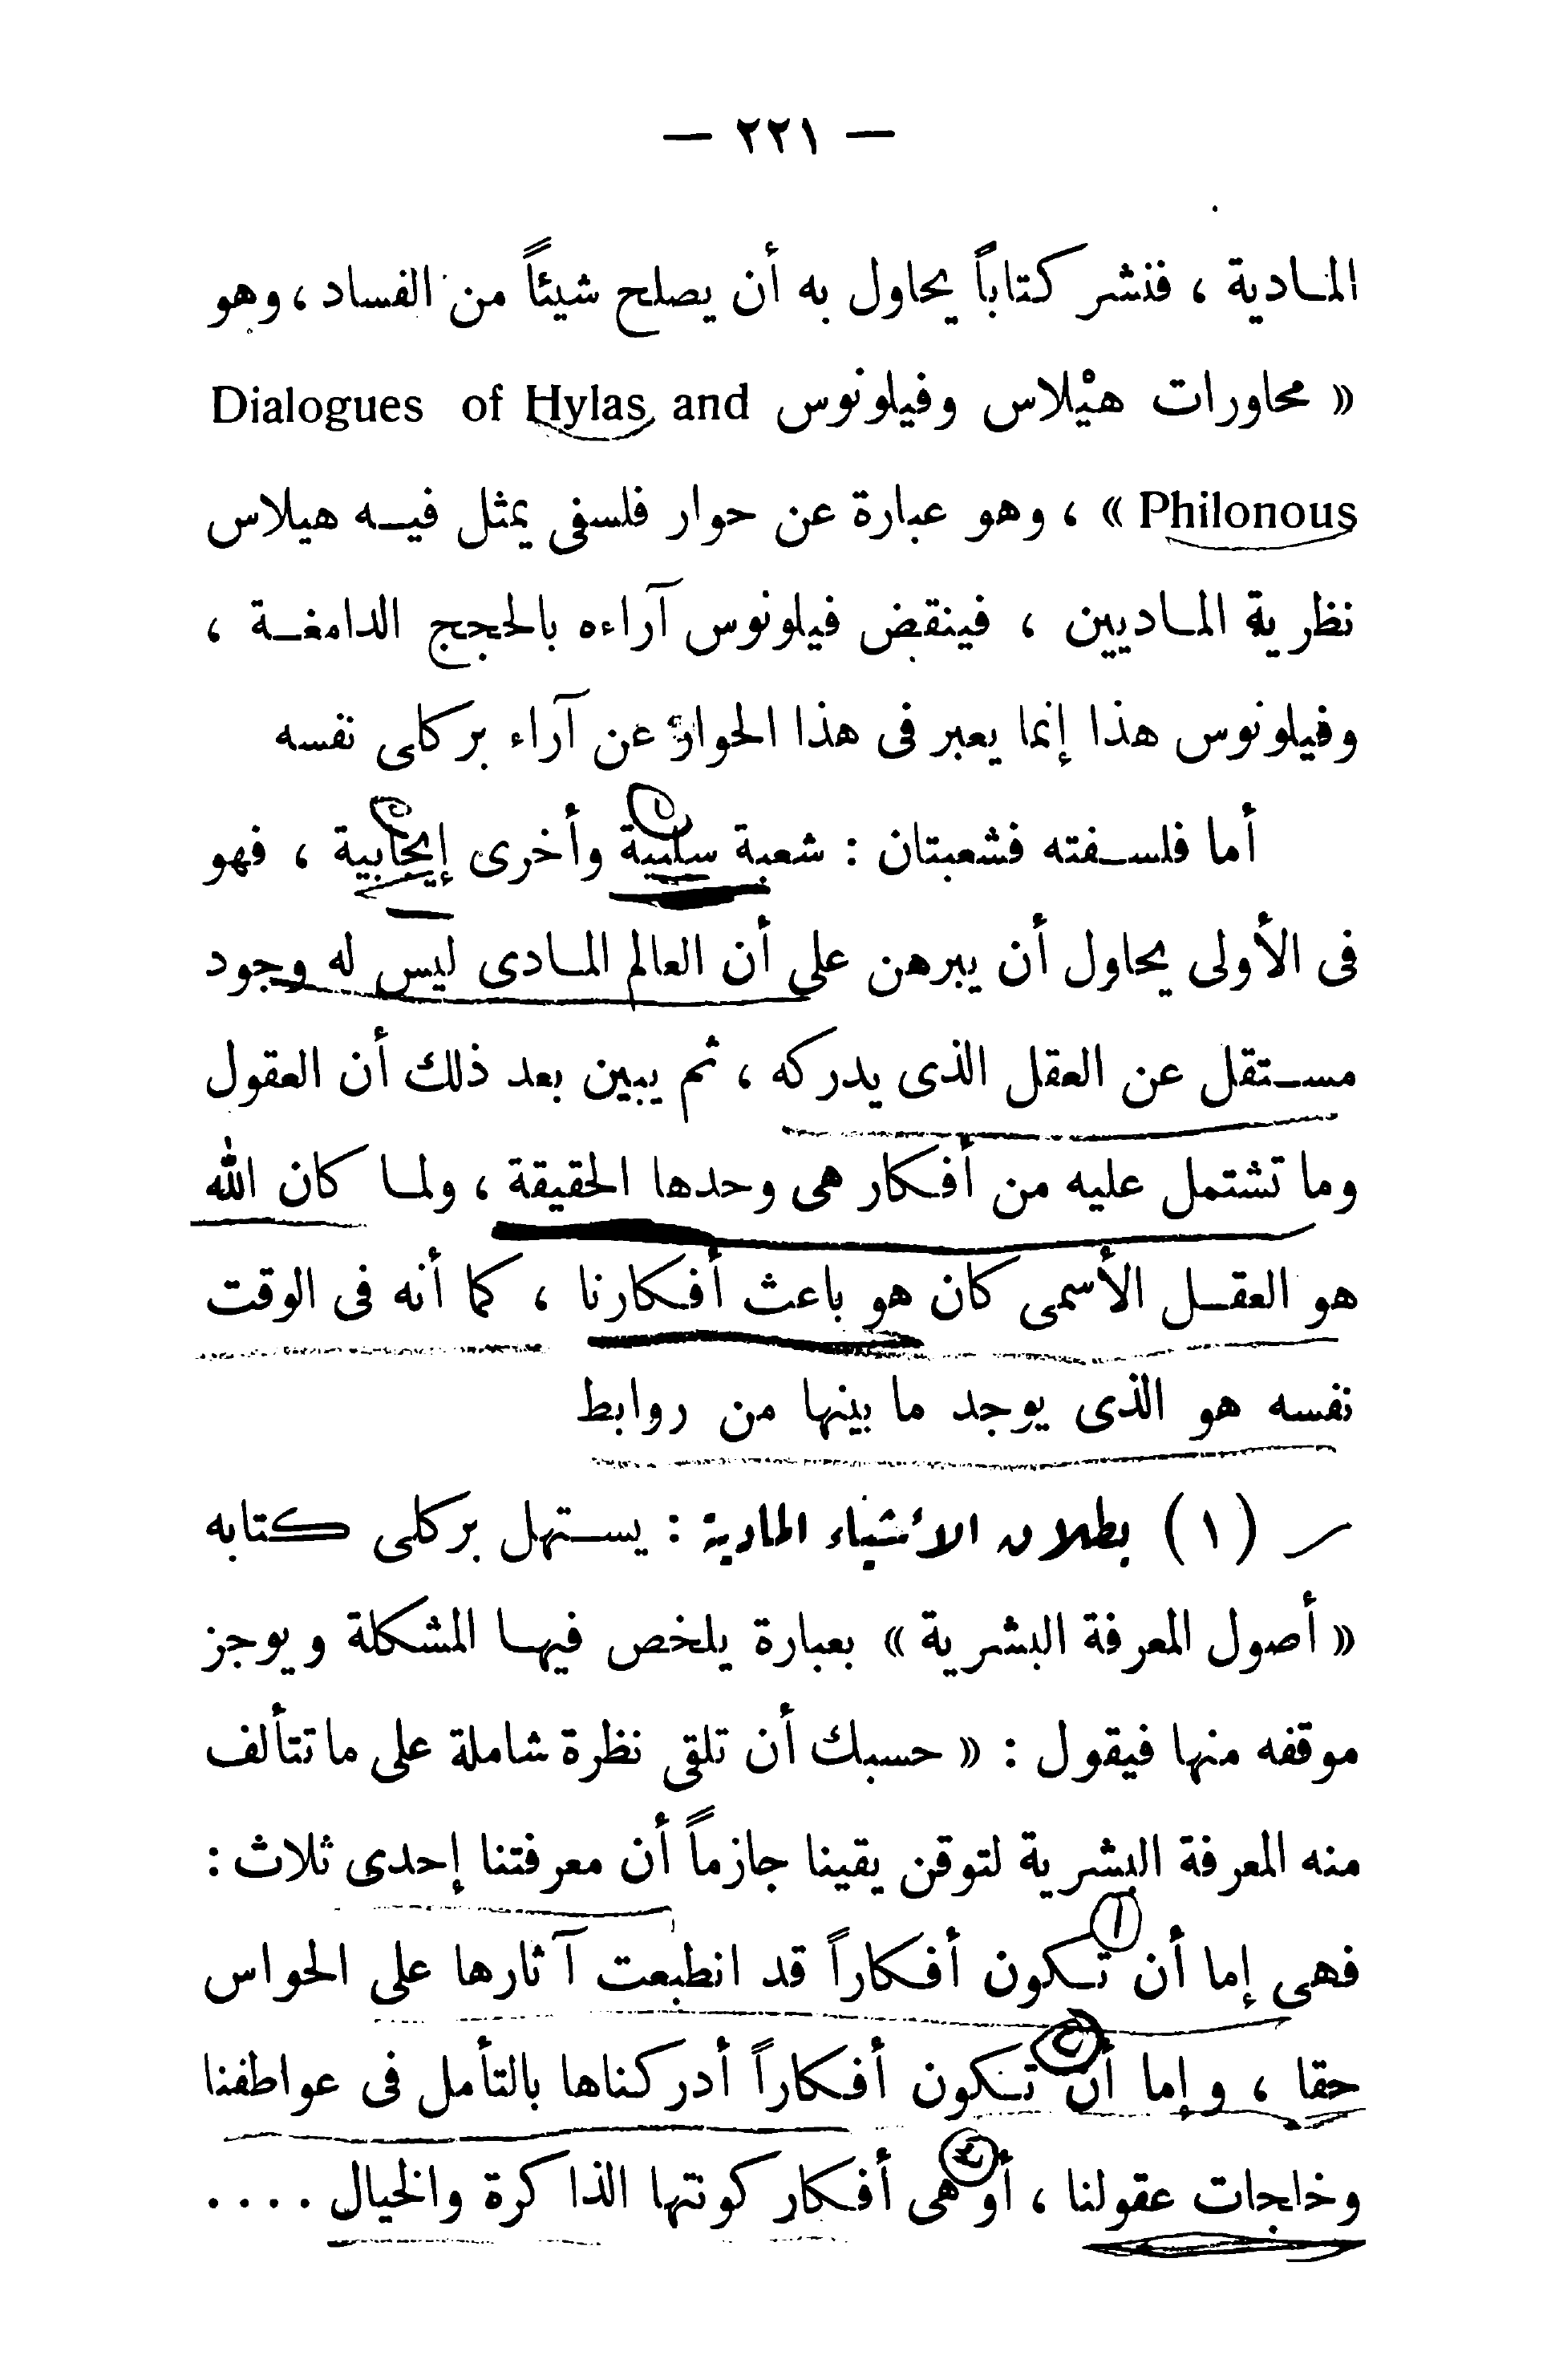 — ٢٢١ —
المادية ، فنشر كتاباً يحاول به أن يصلح شيئاً من الفساد ، وهو
« محاورات هيْلاس وفيلونوس Dialogues of Hylas and
Philonous » ، وهو عبارة عن حوار فلسفى يمثل فيه هيلاس
نظرية الماديين ، فينقض فيلونوس آراءه بالحجج الدامغة ،
وفيلونوس هذا إنما يعبر فى هذا الحوار عن آراء بركلى نفسه
أما فلسفته فشعبتان : شعبة سلبية وأخرى إيجابية ، فهو
فى الأولى يحاول أن يبرهن على أن العالم المادى ليس له وجود
مستقل عن العقل الذى يدركه ، ثم يبين بعد ذلك أن العقول
وما تشتمل عليه من أفكار هى وحدها الحقيقة ، ولما كان الله
هو العقل الأسمى كان هو باعث أفكارنا ، كما أنه فى الوقت
نفسه هو الذى يوجد ما بينها من روابط
(١) بطلان الأشياء المادية : يستهل بركلى كتابه
« أصول المعرفة البشرية » بعبارة يلخص فيها المشكلة ويوجز
موقفه منها فيقول : « حسبك أن تلقى نظرة شاملة على ما تتألف
منه المعرفة البشرية لتوقن يقينا جازماً أن معرفتنا إحدى ثلاث :
١
فهى إما أن تكون أفكاراً قد انطبعت آثارها على الحواس
٢
حقا ، وإما أن تكون أفكاراً أدركناها بالتأمل فى عواطفنا
٣
وخلجات عقولنا ، أو هى أفكار كونتها الذاكرة والخيال ....